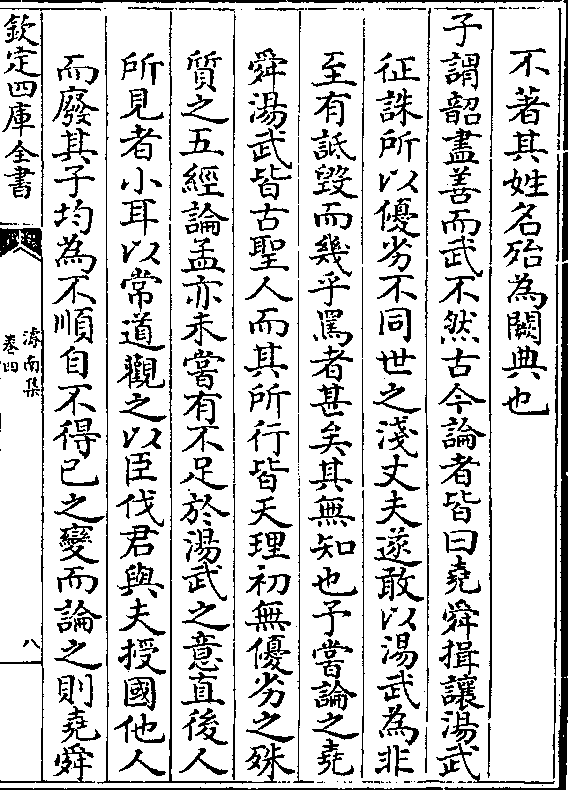 不著其姓名殆為闕典也
子謂韶盡善而武不然古今論者皆曰堯舜揖讓湯武
征誅所以優劣不同世之淺丈夫遂敢以湯武為非
至有詆毀而幾乎罵者甚矣其無知也予嘗論之堯
舜湯武皆古聖人而其所行皆天理初無優劣之殊
質之五經論孟亦未嘗有不足於湯武之意直後人
所見者小耳以常道觀之以臣伐君與夫授國他人
而廢其子均為不順自不得已之變而論之則堯舜
欽定四庫全書
滹南集
卷四
八